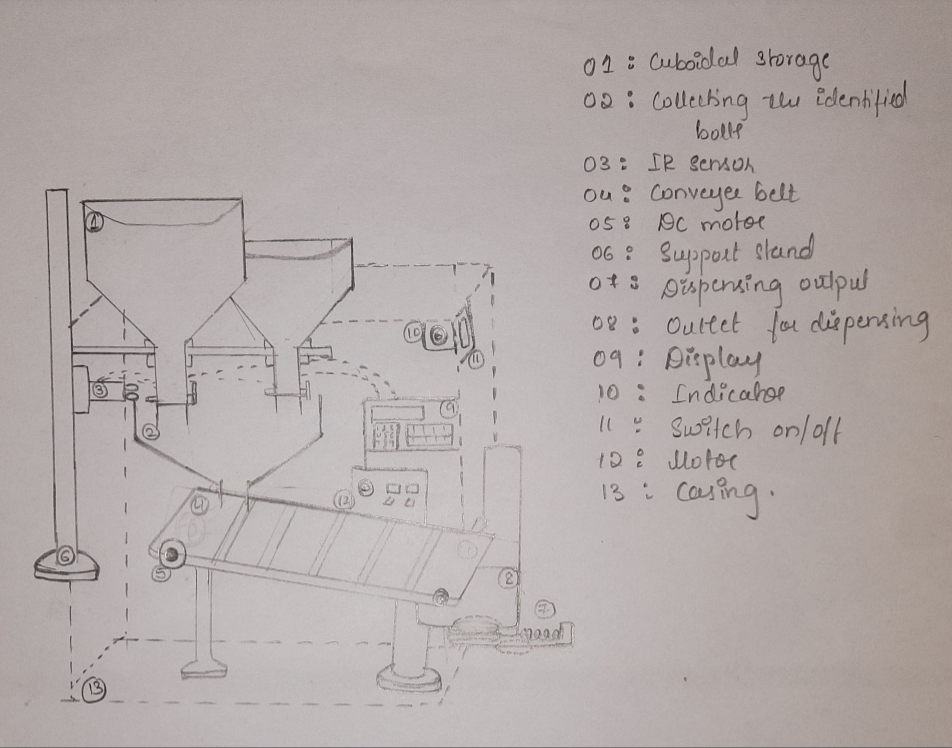 01 : Cuboidal storage
02 : Collecting the identified
bolts
03 : IR Sensor
04 : Conveyer belt
05 : DC motor
06 : Support stand
07 : Dispensing output
08 : Outlet for dispensing
09 : Display
10 : Indicator
11 : Switch on/off
12 : Motor
13 : Casing.
1
10
6
11
3
9
2
4
12
6
5
8
7
13